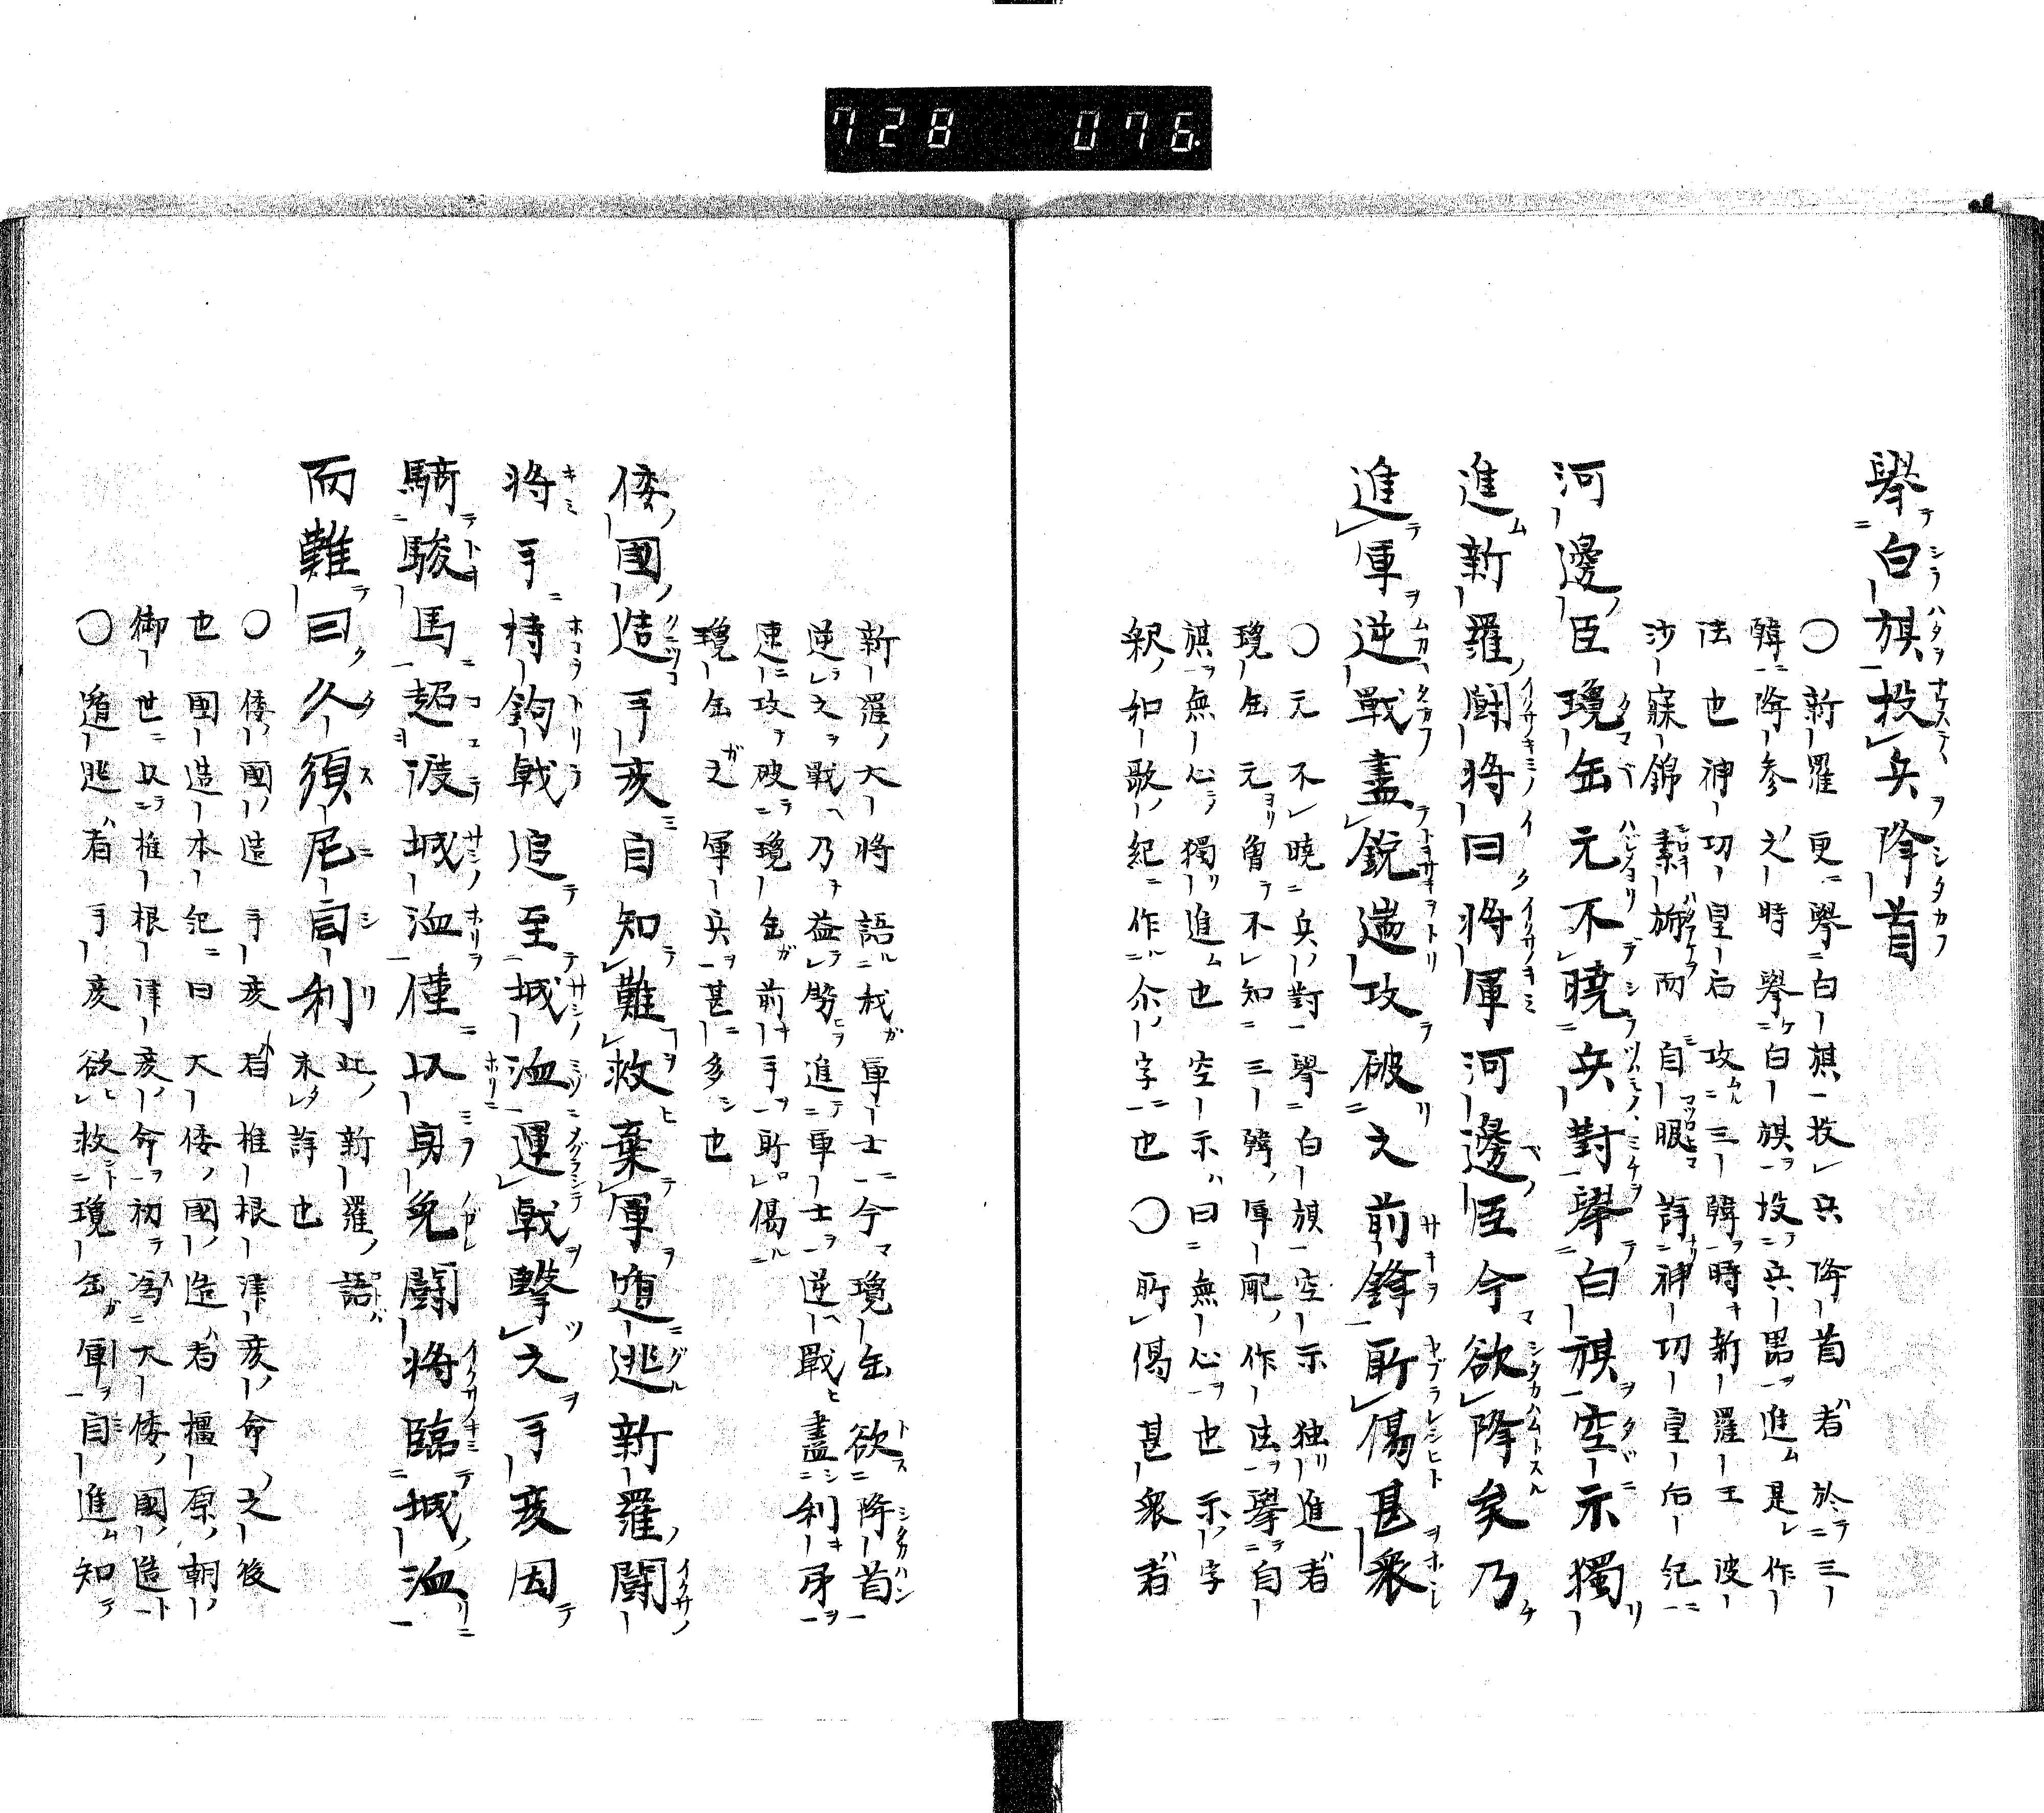 728 076.
舉白旗投兵降首
〇新羅更舉白旗投兵降首者於三
韓降參之時舉白旗投兵器進是作
法也神功皇后攻三韓時新羅王波
沙寐錦素旆而自服詳神功皇后紀
河邊臣瓊缶元不曉兵對舉白旗空示獨
進新羅闘将曰将軍河邊臣今欲降矣乃
進軍逆戰盡鋭遄攻破之前鋒所傷甚衆
〇元不曉兵對舉白旗空示独進者
瓊缶元曽不知三韓軍配作法舉自
旗無心獨進也空示曰無心也示字
釈如歌紀作尓字也〇所傷甚衆者
新羅大将語我軍士今瓊缶欲降首
逆之戰乃益勢進軍士逆戰盡利矛
速攻破瓊缶前手所傷
瓊缶之軍兵甚多也
倭國造手彦自知難救棄軍遁逃新羅闘
将手持鉤戟追至城洫運戟擊之手彦因
騎駿馬超渡城洫僅以身免闘将臨城洫
而難曰久須尼自利此新羅語
未詳也
〇倭國造手彦者椎根津彦命之後
也國造本紀曰大倭國造者橿原朝
御世以椎根津彦命初為大倭國造
〇遁逃者手彦欲救瓊缶軍自進知